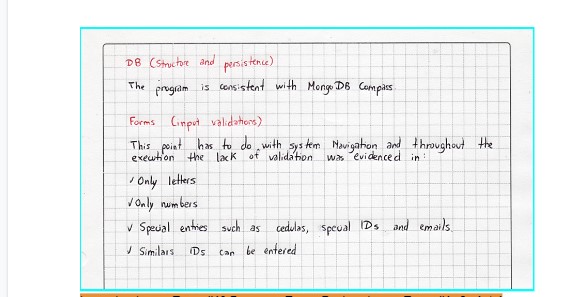 DB (Structure and persistence)
The program is consistent with MongoDB Compass
Forms (input validations)
This point has to do with system Navigation and throughout the
execution the lack of validation was evidenced in:
✓ Only letters
✓ Only numbers
✓ Special entries such as cedulas, specual IDs and emails
✓ Similars IDs can be entered